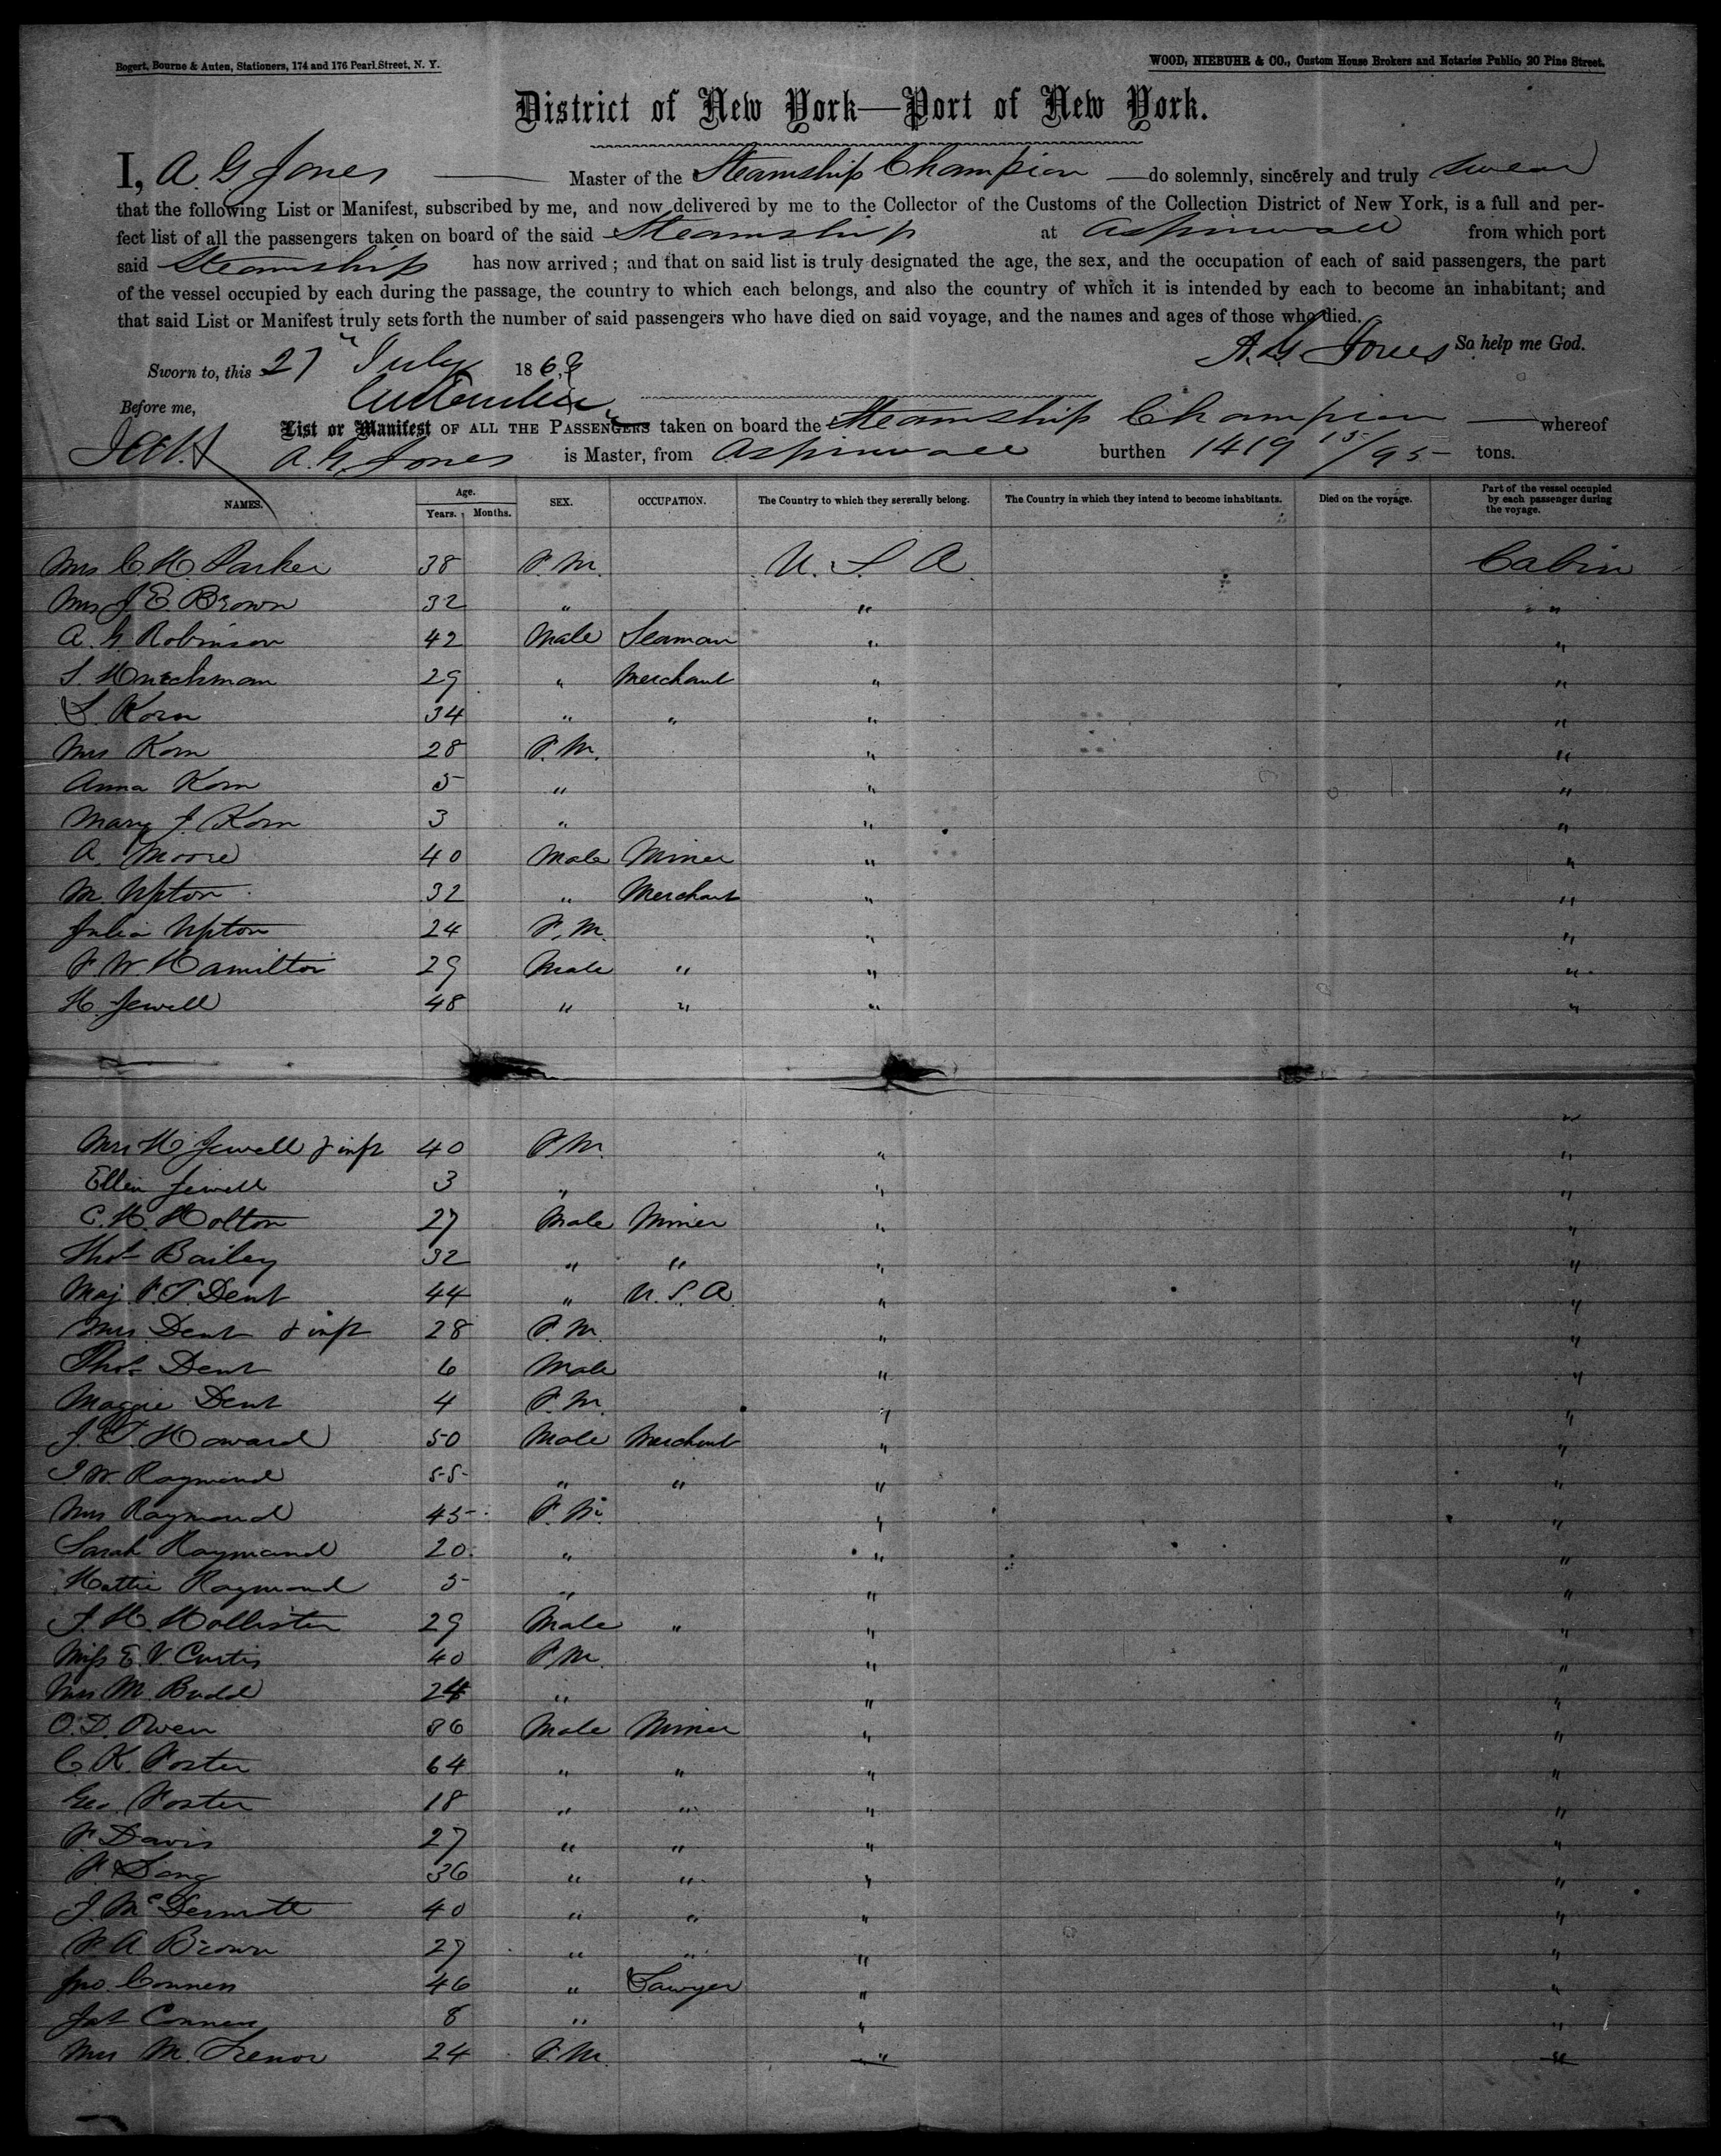 Bogert, Bourne & Auten, Stationers, 174 and 176 Pearl Street, N. Y. WOOD, NIEBUHR & CO., Custom House Brokers and Notaries Public, 20 Pine Street.
District of New York—Port of New York.
I, A. G. Jones Master of the Steamship Champion do solemnly, sincerely and truly swear
that the following List or Manifest, subscribed by me, and now delivered by me to the Collector of the Customs of the Collection District of New York, is a full and per-
fect list of all the passengers taken on board of the said Steamship at Aspinwall from which port
said Steamship has now arrived; and that on said list is truly designated the age, the sex, and the occupation of each of said passengers, the part
of the vessel occupied by each during the passage, the country to which each belongs, and also the country of which it is intended by each to become an inhabitant; and
that said List or Manifest truly sets forth the number of said passengers who have died on said voyage, and the names and ages of those who died.
A. G. Jones So help me God.
Sworn to, this 27 " July 1863
Before me,
List or Manifest OF ALL THE PASSENGERS taken on board the Steamship Champion whereof
A. G. Jones is Master, from Aspinwall burthen 1419 15/95 tons.
NAMES. Age. Years. Months. SEX. OCCUPATION. The Country to which they severally belong. The Country in which they intend to become inhabitants. Died on the voyage. Part of the vessel occupied by each passenger during the voyage.
Mrs C. H. Parker 38 F. M. U. S. A. Cabin
Mrs J. E. Brown 32 " " "
A. G. Robinson 42 Male Seaman " "
S. 29 " Merchant " "
S. Korn 34 " " " "
Mrs Korn 28 F. M. " "
Anna Korn 5 " " "
Mary J. Korn 3 " " "
A. Moore 40 Male Miner " "
M. Upton 32 " Merchant " "
Julia Upton 24 F. M. " "
F. W. Hamilton 29 Male " " "
H. Jewell 48 " " " "
"
Mrs H. Jewell & inft 40 F. M. " "
Ellen Jewell 3 " " "
C. H. Holton 27 Male Miner " "
Thos Bailey 32 " " " "
Maj. F. T. Dent 44 " U. S. A. " "
Mrs. Dent & inft 28 F. M. " "
Thos Dent 6 Male " "
Maggie Dent 4 F. M. " "
J. T. Howard 50 Male Merchant " "
I. W. Raymond 55 " " " "
Mrs Raymond 45 F. M. " "
Sarah Raymond 20 " " "
Hattie Raymond 5 " " "
J. H. Hollister 29 Male " " "
Miss E. V. Curtis 40 F. M. " "
Mrs M. Budd 24 " " "
O. D. Owen 36 Male Miner " "
C. K. Foster 64 " " " "
Geo. Foster 18 " " " "
F. Davis 27 " " " "
F. Lang 36 " " " "
J. McDermott 40 " " " "
F. A. Brown 27 " " " "
Jno. Conness 46 " Lawyer " "
Jas Conness 8 " " "
Mrs M. Trenor 24 F. M. " "